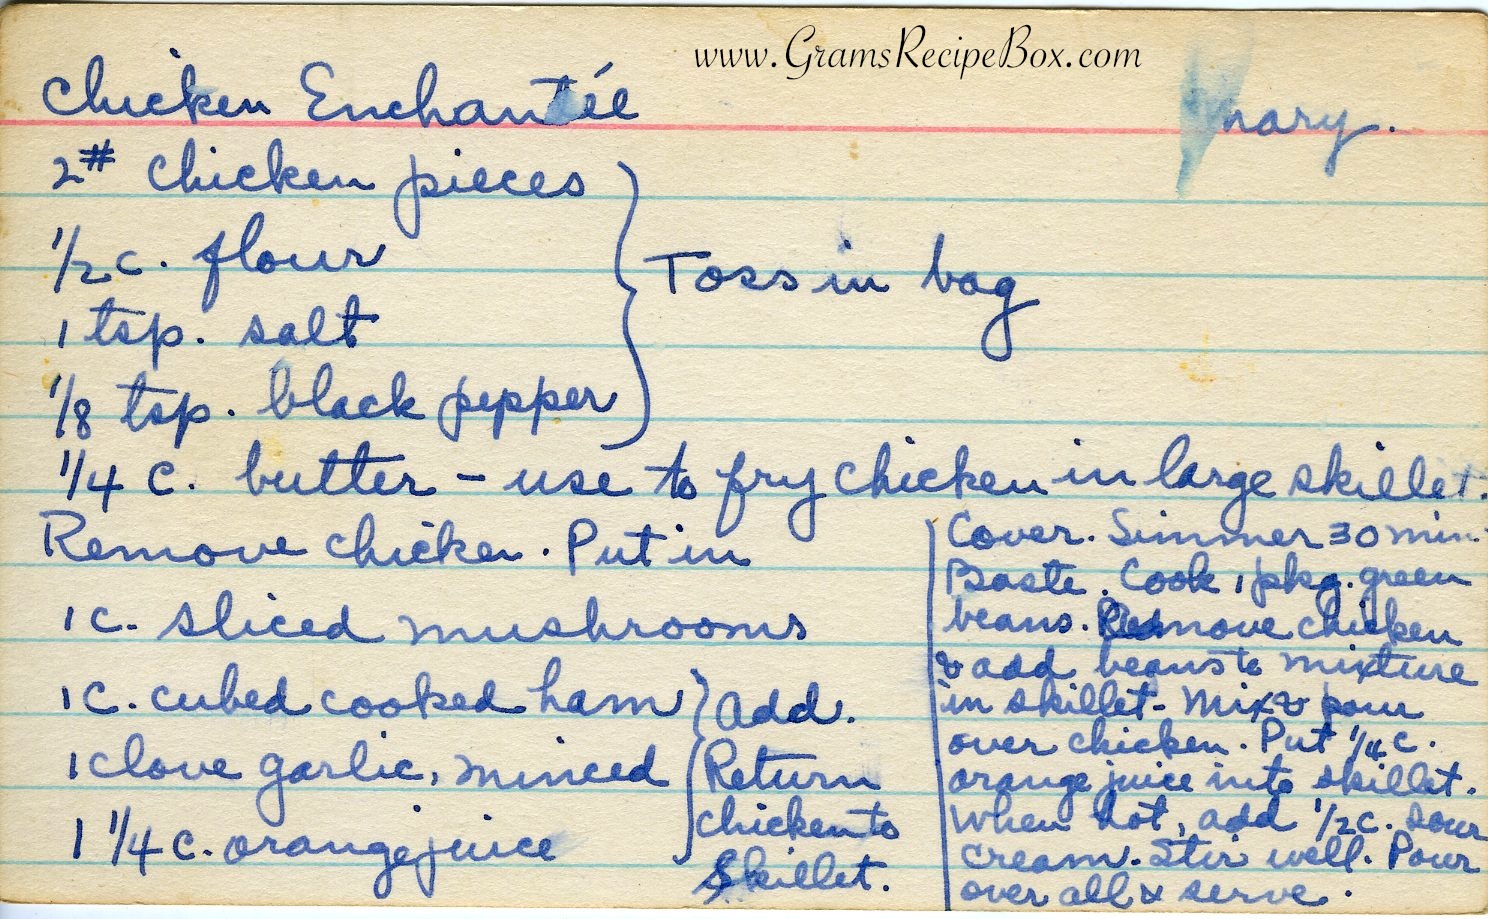 www.GramsRecipeBox.com
Chicken Enchantée
Mary.
2# chicken pieces
1/2 c. flour
1 tsp. salt
1/8 tsp. black pepper
Toss in bag
1/4 c. butter - use to fry chicken in large skillet.
Remove chicken. Put in
1 c. sliced mushrooms
1 c. cubed cooked ham
1 clove garlic, minced
1 1/4 c. orange juice
Add.
Return
chicken to
skillet.
Cover. Simmer 30 min.
Baste. Cook 1 pkg. green
beans. Remove chicken
& add beans to mixture
in skillet - Mix & pour
over chicken. Put 1/4 c.
orange juice into skillet.
When hot, add 1/2 c. sour
cream. Stir well. Pour
over all & serve.